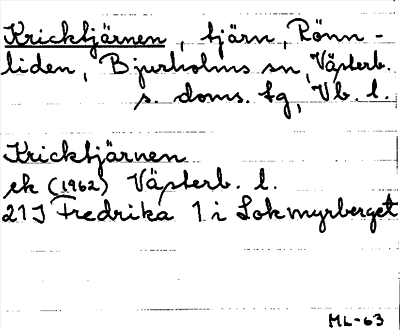 Kricktjärnen, tjärn, Rönn-
liden, Bjurholms sn, Västerb.
s. doms. tg, Vb. l.
Kricktjärnen
ek (1962) Västerb. l.
21 J Fredrika 1 i Lokmyrberget
ML-63